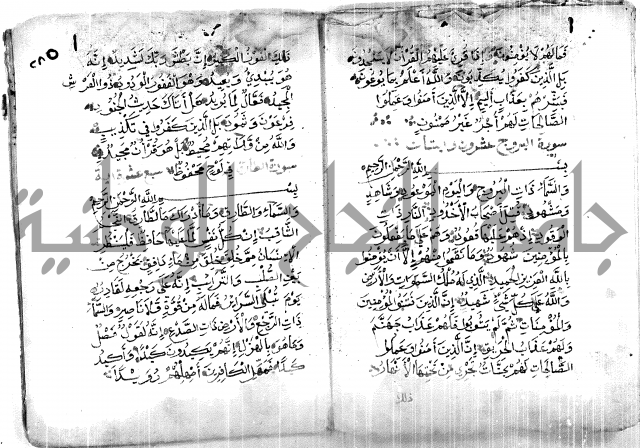 فمالهم لا يؤمنون واذا قرئ عليهم القران لا يسجدون
بل الذين كفروا يكذبون والله اعلم بما يوعون
فبشرهم بعذاب اليم الا الذين امنوا وعملوا
الصالحات لهم اجر غير ممنون
سورة البروج عشرون وايتان
بسم الله الرحمن الرحيم
والسماء ذات البروج واليوم الموعود وشاهد
ومشهود قتل اصحاب الاخدود النار ذات
الوقود اذ هم عليها قعود وهم على ما يفعلون
بالمؤمنين شهود وما نقموا منهم الا ان يؤمنوا
بالله العزيز الحميد الذي له ملك السموات والارض
والله على كل شيء شهيد ان الذين فتنوا المؤمنين
والمؤمنات ثم لم يتوبوا فلهم عذاب جهنم
ولهم عذاب الحريق ان الذين امنوا وعملوا
الصالحات لهم جنات تجري من تحتها الانهار
ذلك
ذلك الفوز الكبير ان بطش ربك لشديد انه
هو يبدئ ويعيد وهو الغفور الودود ذو العرش
المجيد فعال لما يريد هل اتاك حديث الجنود
فرعون وثمود بل الذين كفروا في تكذيب
والله من ورائهم محيط بل هو قران مجيد
في لوح محفوظ سورة الطارق سبع عشرة اية
بسم الله الرحمن الرحيم
والسماء والطارق وما ادراك ما الطارق النجم
الثاقب ان كل نفس لما عليها حافظ فلينظر
الانسان مم خلق خلق من ماء دافق يخرج من
بين الصلب والترائب انه على رجعه لقادر
يوم تبلى السرائر فماله من قوة ولا ناصر والسماء
ذات الرجع والارض ذات الصدع انه لقول فصل
وما هو بالهزل انهم يكيدون كيدا واكيد
كيدا فمهل الكافرين امهلهم رويدا
جامعة النجاح الوطنية